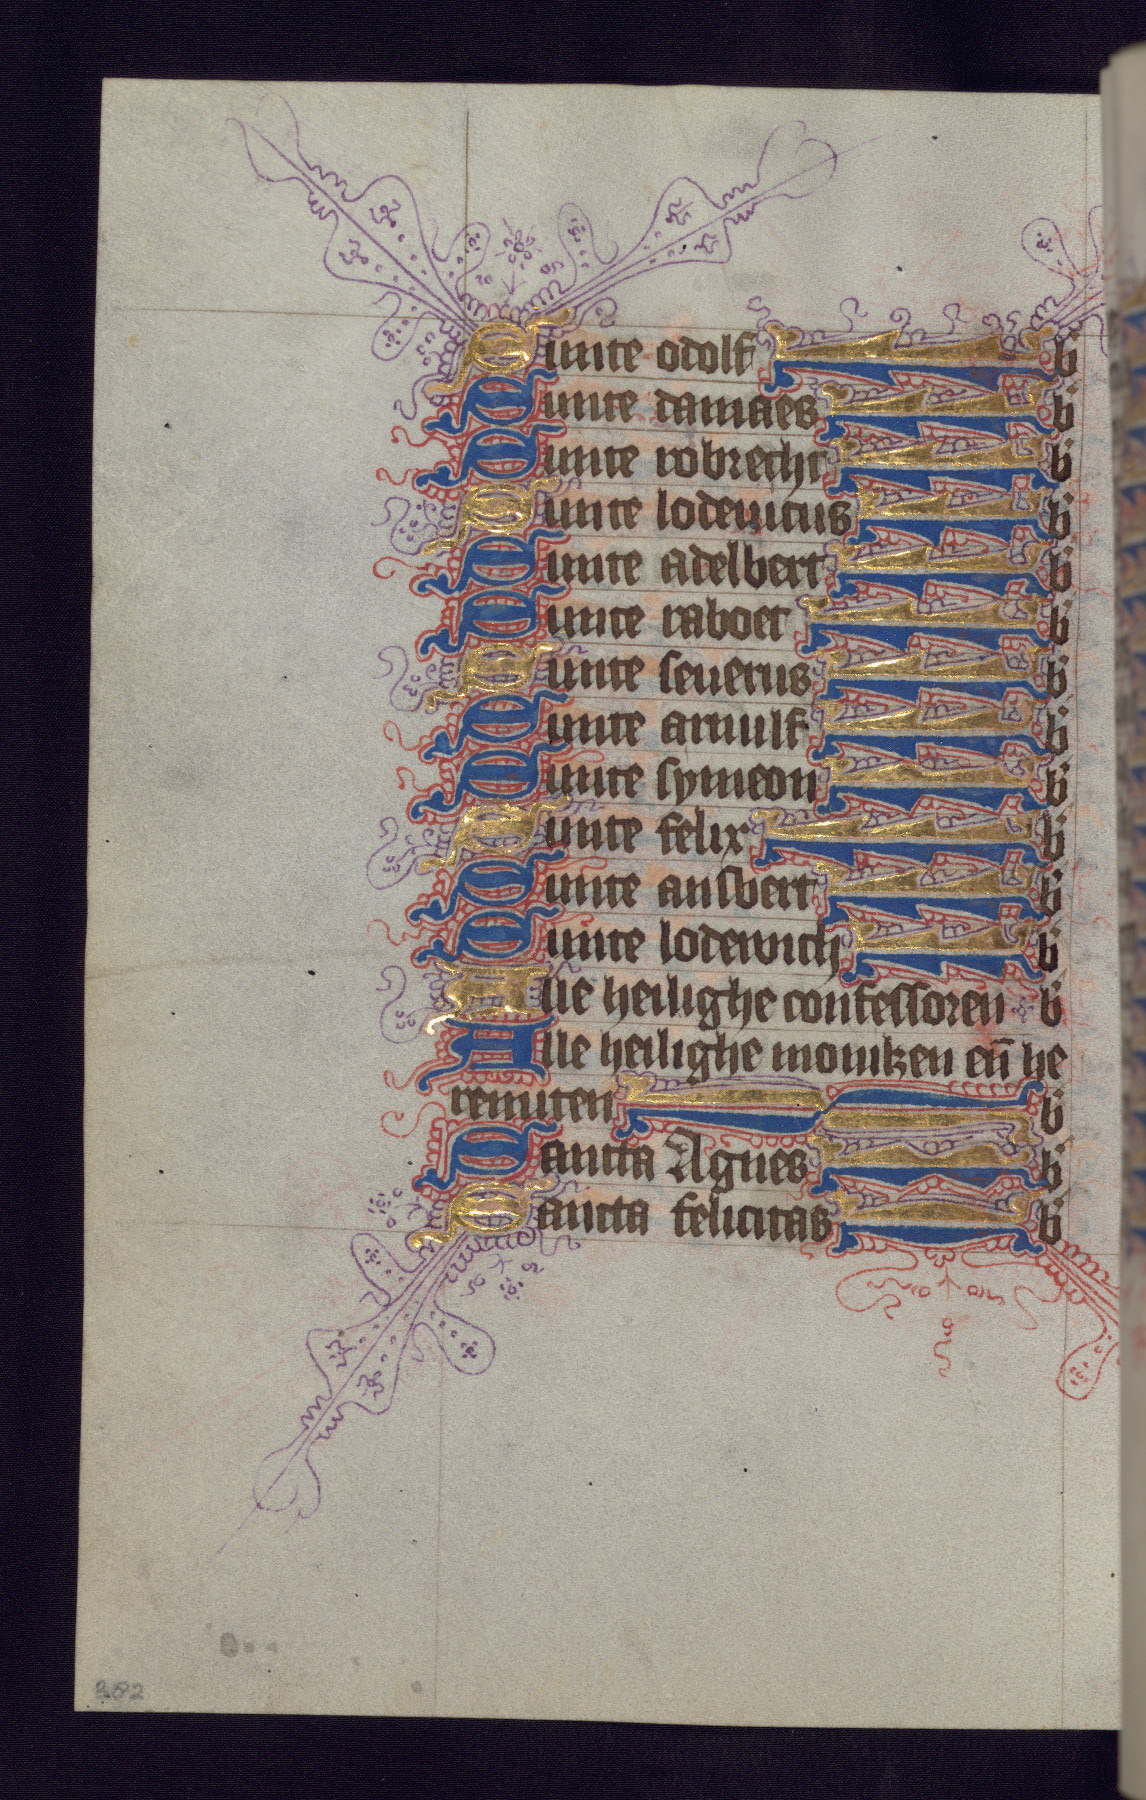 Sunte odolf b
Sunte damaes b
Sunte robrecht b
Sunte lodewicus b
Sunte adelbert b
Sunte raboet b
Sunte seuerus b
Sunte arnulf b
Sunte symeon b
Sunte felix b
Sunte ansbert b
Sunte lodewich b
Alle heilighe confessoren b
Alle heilighe moniken eñ he
remiten b
Sancta Agnes b
Sancta felicitas b